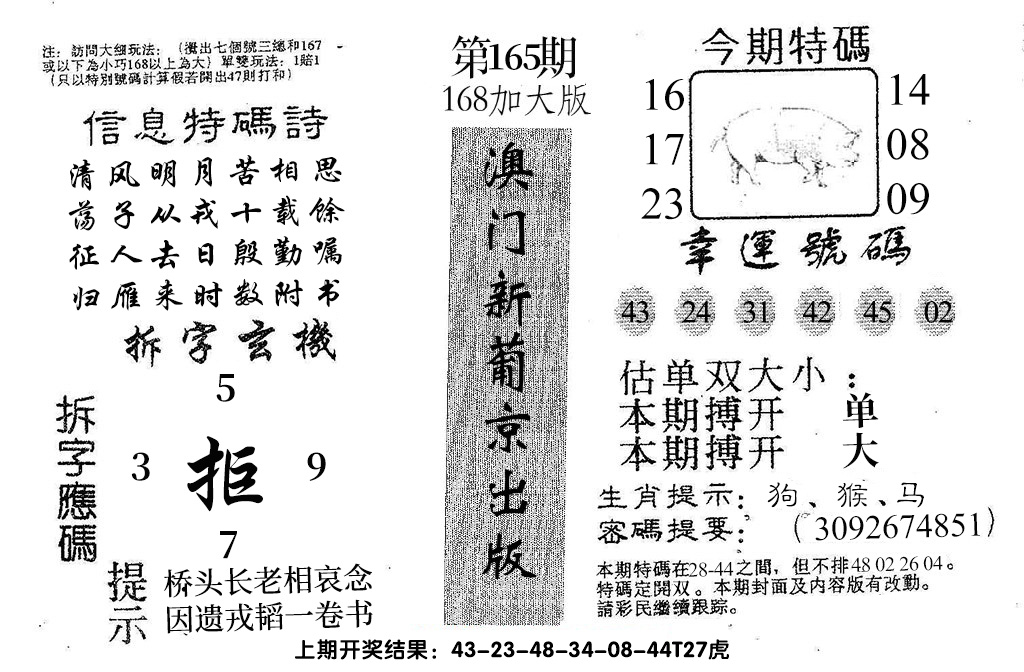 注：訪問大细玩法：（攪出七個號三總和167
或以下為小巧168以上為大）單雙玩法：1賠1
（只以特別號碼計算假若開出47則打和）
信息特碼詩
清风明月苦相思
荡子从戎十载馀
征人去日殷勤嘱
归雁来时数附书
拆字玄機
拆字應碼
5
3
拒
9
7
提示
桥头长老相哀念
因遗戎韬一卷书
第165期
168加大版
澳门新葡京出版
今期特碼
16
17
23
14
08
09
幸運號碼
43 24 31 42 45 02
估单双大小：
本期搏开 单
本期搏开 大
生肖提示：狗、猴、马
密碼提要：（3092674851）
本期特碼在28-44之間，但不排48 02 26 04。
特碼定開双。本期封面及内容版有改動。
請彩民繼續跟踪。
上期开奖结果：43-23-48-34-08-44T27虎